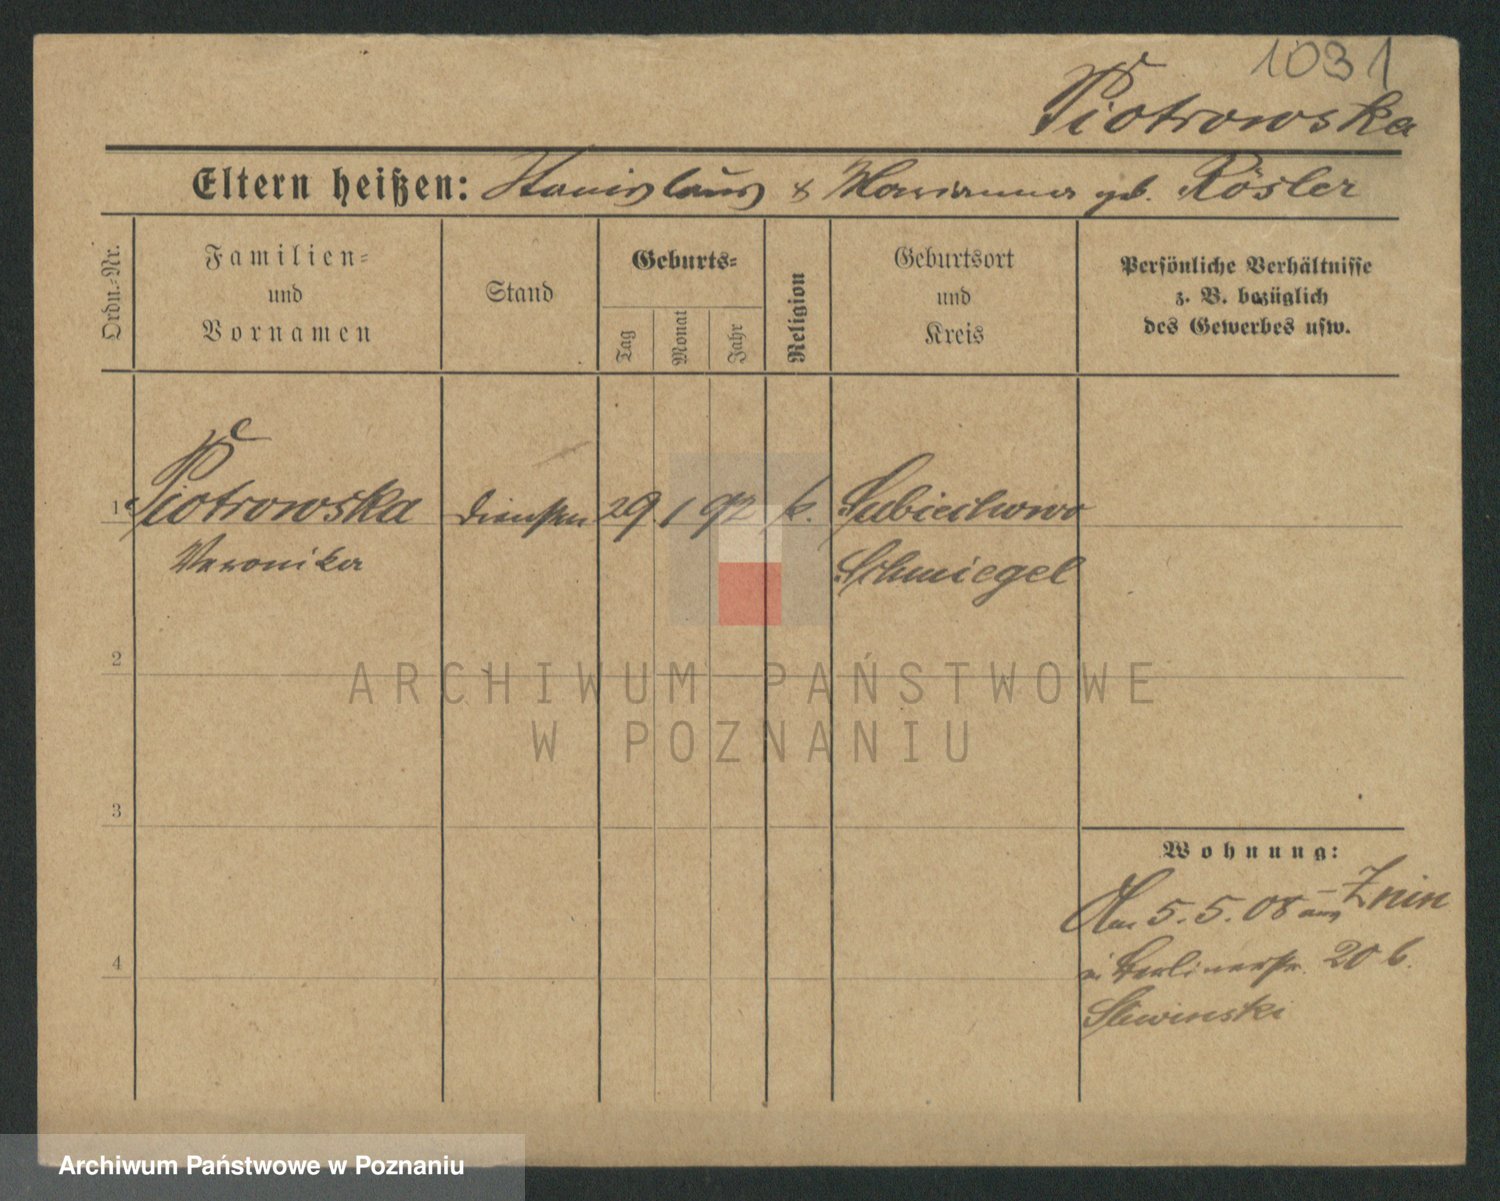 1031
Piotrowska
Eltern heißen: Stanislaus & Marianna geb. Rösler
Ordn.-Nr.
Familien-
und
Vornamen
Stand
Geburts-
Tag
Monat
Jahr
Religion
Geburtsort
und
Kreis
Persönliche Verhältnisse
z. B. bezüglich
des Gewerbes usw.
1 Piotrowska 29 1 92 k.
Veronika Schmiegel
2
ARCHIWUM PAŃSTWOWE
W POZNANIU
3
Wohnung:
Am 5.5.08 aus Znin
4
Berlinerstr. 20 b.
Sliwinski
Archiwum Państwowe w Poznaniu